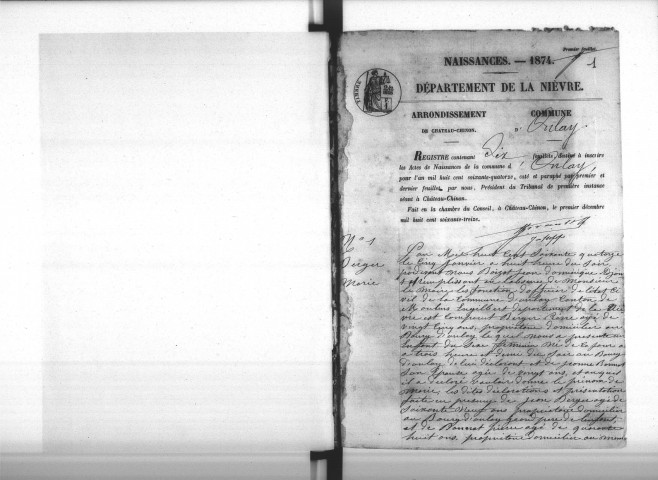 Premier feuillet.
1
NAISSANCES. — 1874.
DÉPARTEMENT DE LA NIÈVRE.
TIMBRE
ARRONDISSEMENT
DE CHATEAU-CHINON.
COMMUNE
D'Onlay
REGISTRE contenant Six feuillets, destiné à inscrire
les Actes de Naissances de la commune d'Onlay,
pour l'an mil huit cent soixante-quatorze, coté et paraphé par premier et
dernier feuillet, par nous, Président du Tribunal de première instance
séant à Château-Chinon.
Fait en la chambre du Conseil, à Château-Chinon, le premier décembre
mil huit cent soixante-treize.
N° 1
Berger
Marie
L'an Mil huit Cent Soixante quatorze
le Cinq Janvier a huit heure du Soir
pardevant nous Boizot Jean dominique
remplissant en labsence de Monsieur
le Maire les fonction d'officier de létat Ci
vil de la Commune d'onlay Canton de
Moulins Engilbert département de la Niè
vre est Comparut Berger Pierre agé de
vingt Cinq ans, propriétaire domicilier au
Bourg d'onlay le quel nous a présenté un
Enfant du Sexe féminin né de ce jour a
trois heure et demi du Soir au Bourg
d'onlay de lui déclarant et de jeanne Bonnot
Son Epouse agée de vingt ans, et auquel
il a déclaré vouloir donné le prénom de
Marie, les dites déclarations et présentation
faite en présence de jean Berger agé de
Soixante neuf ans propriétaire domicilier
au Bourg d'onlay grand père de lenfant
et de Bonnot pierre agé de quarante
huit ans, propriétaire domicilier au même